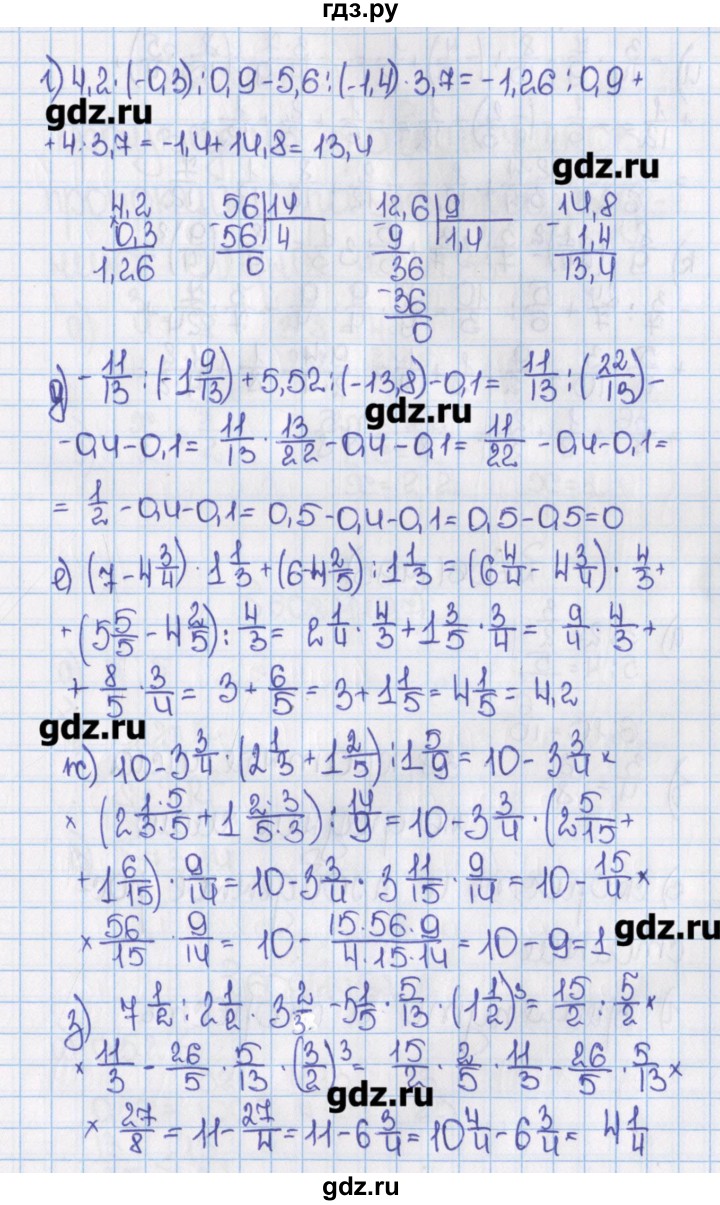 гдз.ру
г) 4,2·(-0,3):0,9-5,6:(-1,4)·3,7=-1,26:0,9+
gdz.ru
+4·3,7=-1,4+14,8=13,4
gdz.ru
4,2 56|14 12,6|9 14,8
0,3 56 4 9 1,4 1,4
1,26 0 36 13,4
36
0
д) -11/13:(-1 9/13)+5,52:(-13,8)-0,1= 11/13:(22/13)-
gdz.ru
-0,4-0,1= 11/13·13/22-0,4-0,1= 11/22-0,4-0,1=
= 1/2-0,4-0,1=0,5-0,4-0,1=0,5-0,5=0
е) (7-4 3/4)·1 1/3+(6-4 2/5):1 1/3=(6 4/4-4 3/4)·4/3+
+(5 5/5-4 2/5):4/3= 2 1/4·4/3+1 3/5·3/4= 9/4·4/3+
+ 8/5·3/4= 3+6/5=3+1 1/5=4 1/5=4,2
gdz.ru
ж) 10-3 3/4·(2 1/3+1 2/5):1 5/9=10-3 3/4×
×(2 1·5/3·5+1 2·3/5·3):14/9=10-3 3/4·(2 5/15+
+1 6/15)·9/14=10-3 3/4·3 11/15·9/14=10-15/4×
×56/15·9/14= 10-15·56·9/4·15·14=10-9=1
gdz.ru
з) 7 1/2:2 1/2·3 2/3-5 1/5·5/13·(1 1/2)³=15/2:5/2×
×11/3-26/5·5/13·(3/2)³= 15/2·2/5·11/3-26/5·5/13×
gdz.ru
×27/8=11-27/4=11-6 3/4=10 4/4-6 3/4= 4 1/4
gdz.ru